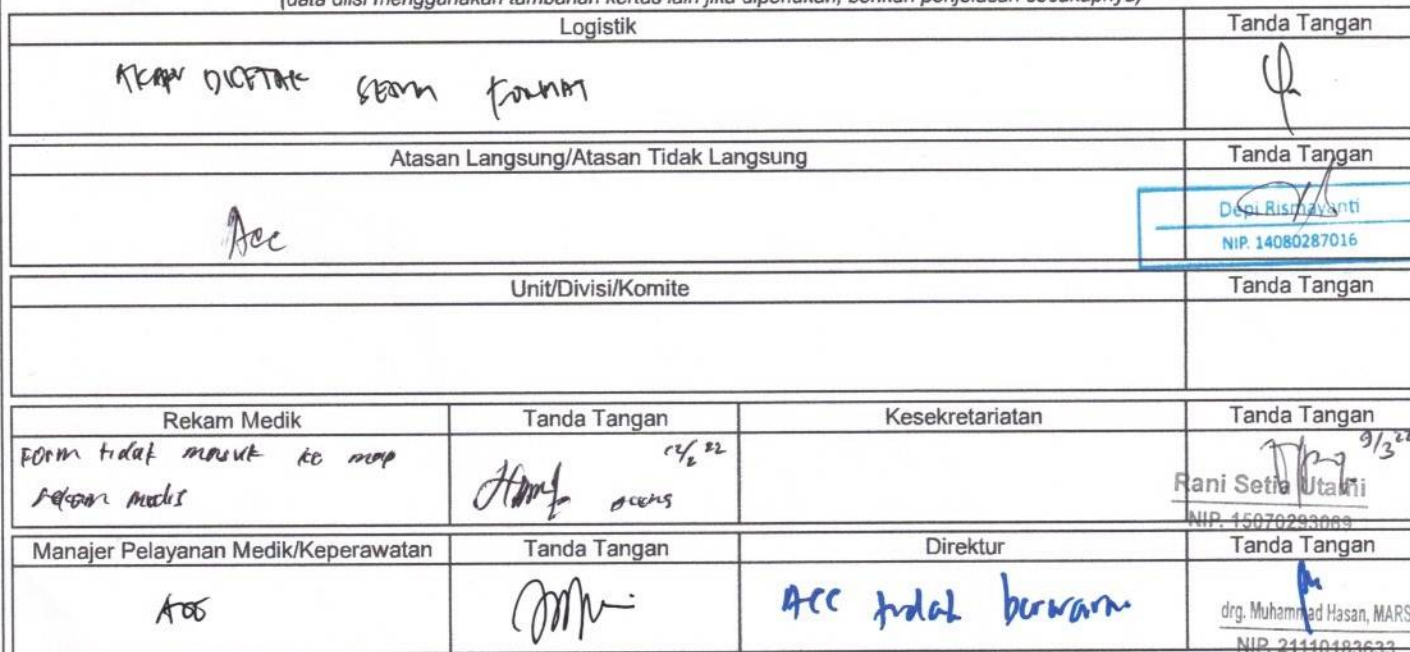 (data diisi menggunakan tambahan kertas lain jika diperlukan, berikan penjelasan secukupnya)
Logistik
Tanda Tangan
AKAN DICETAK SESUAI FORMAT
Atasan Langsung/Atasan Tidak Langsung
Tanda Tangan
Acc
Depi Rismayanti
NIP. 14080287016
Unit/Divisi/Komite
Tanda Tangan
Rekam Medik
Tanda Tangan
Kesekretariatan
Tanda Tangan
Form tidak masuk ke map
rekam medis
9/3 22
Rani Setia Utami
NIP. 15070293089
Manajer Pelayanan Medik/Keperawatan
Tanda Tangan
Direktur
Tanda Tangan
Acc
Acc tidak berwarna
drg. Muhammad Hasan, MARS
NIP. 21110183633